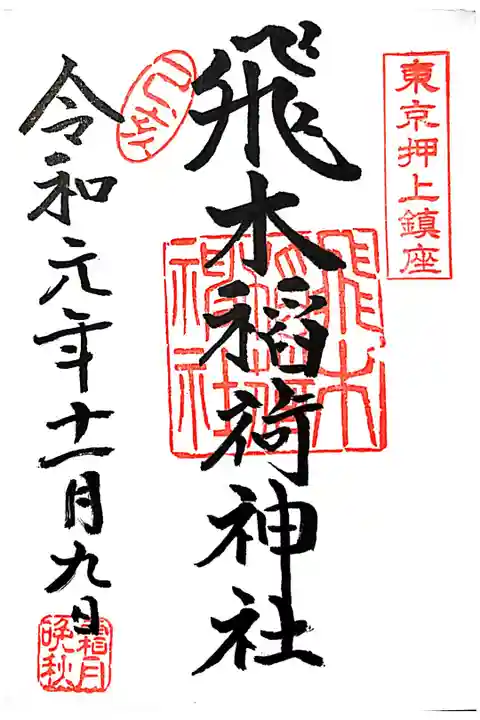 東京押上鎮座
飛木稲荷神社
飛木稲荷神社
令和元年十一月九日
霜月
晩秋